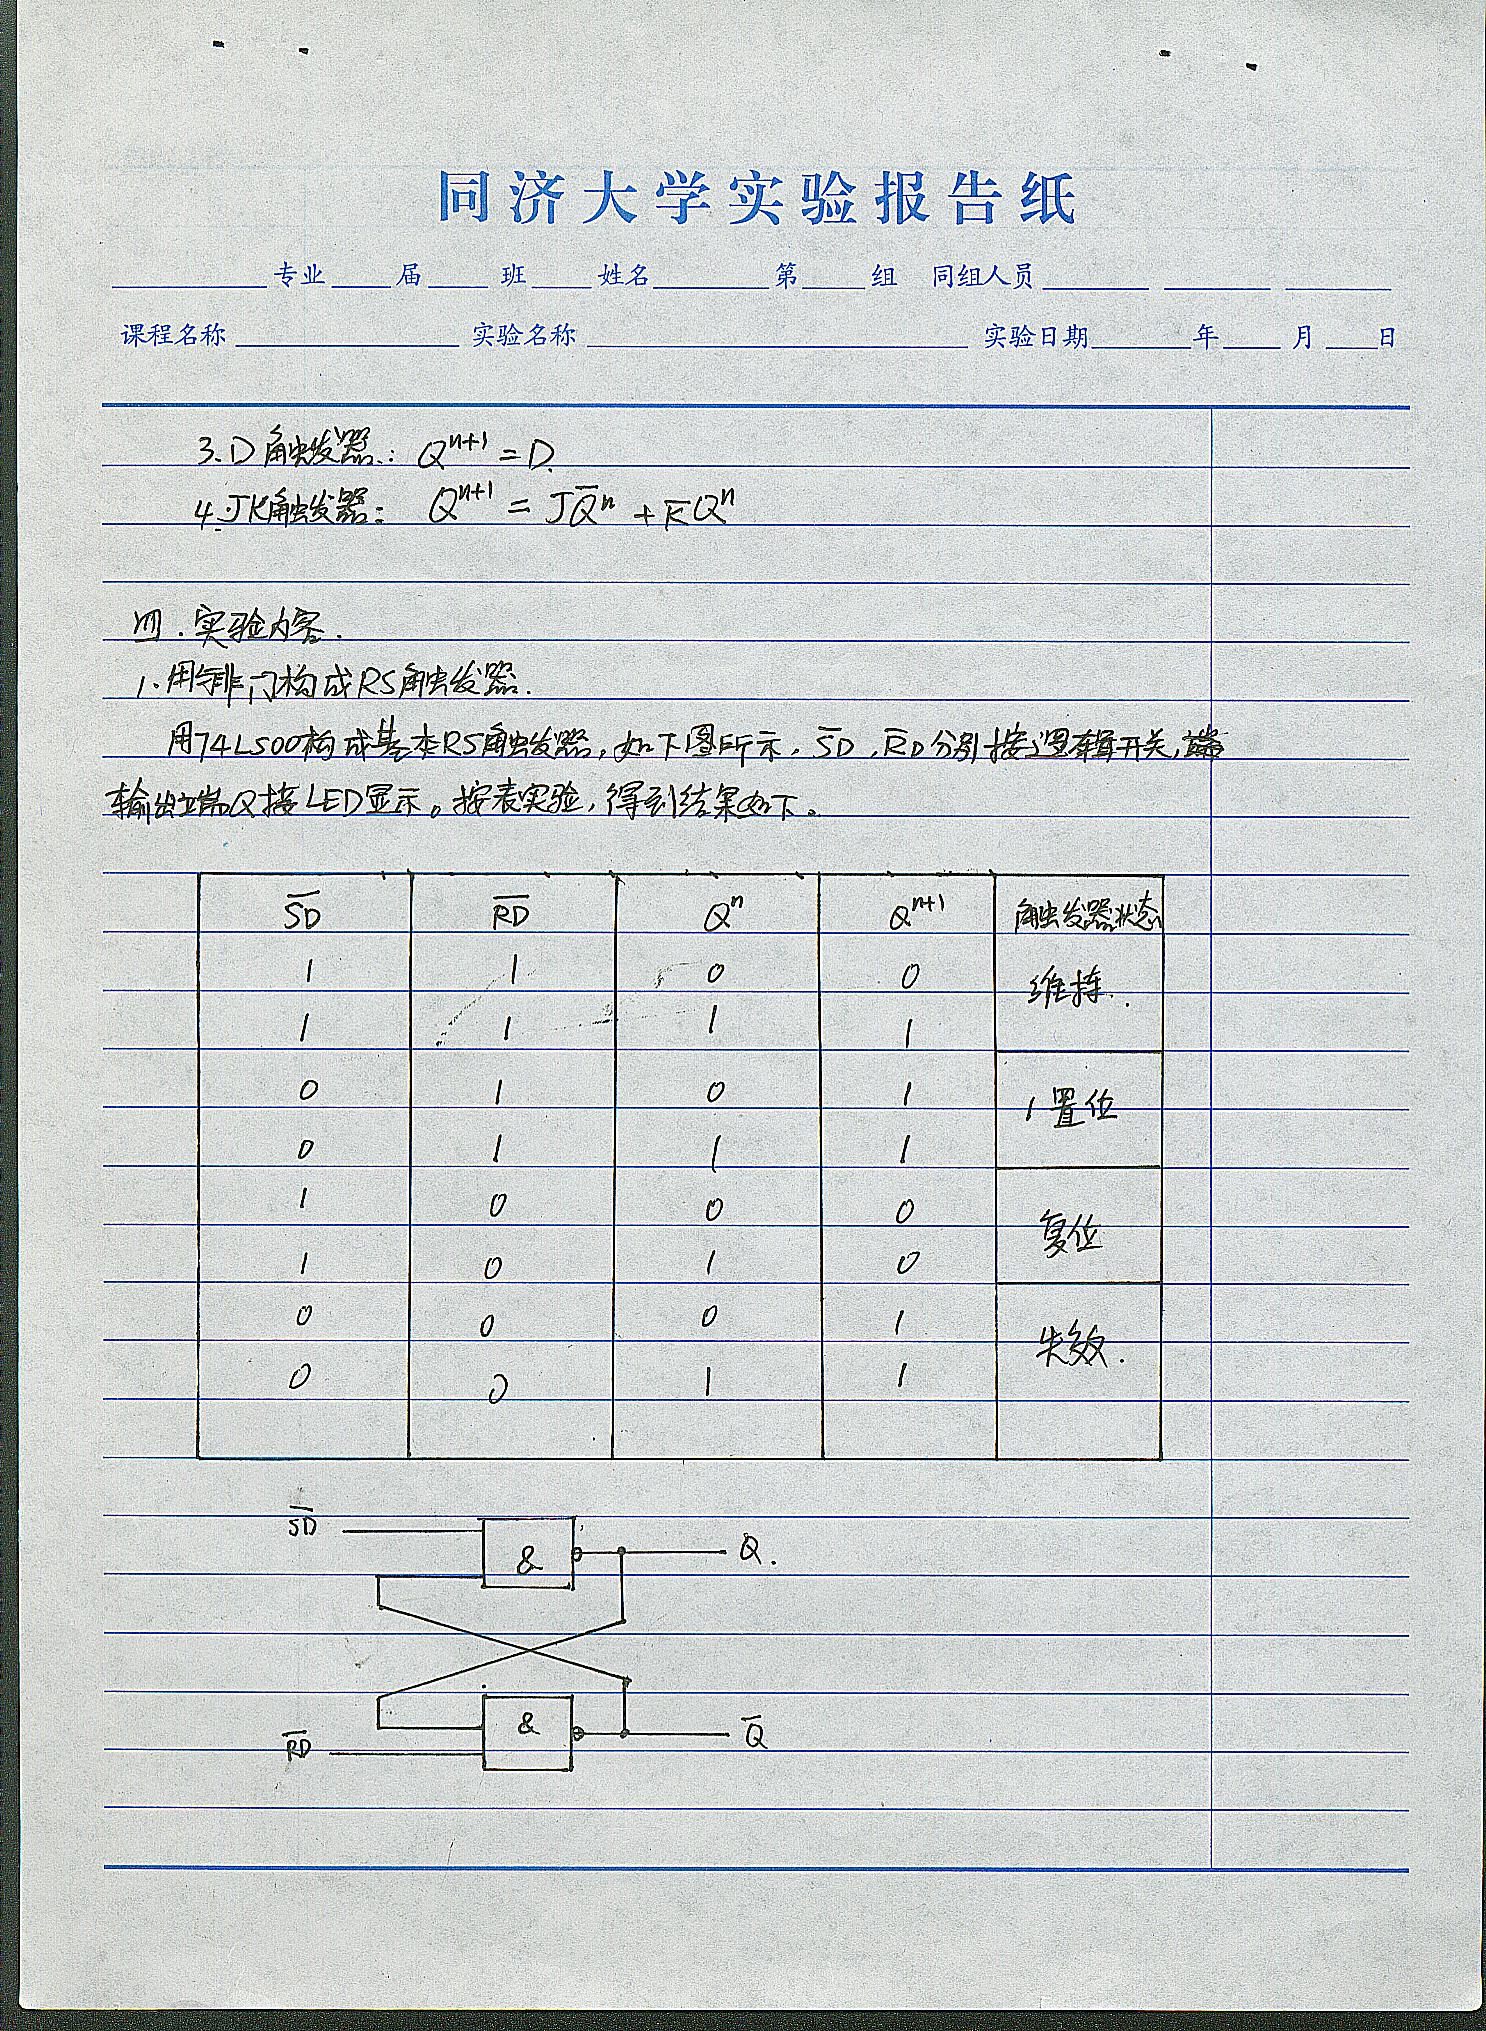 同济大学实验报告纸
专业 届 班 姓名 第 组 同组人员
课程名称 实验名称 实验日期 年 月 日
3.D触发器: Qⁿ⁺¹=D.
4.JK触发器: Qⁿ⁺¹ = JQ̅ⁿ + K̅Qⁿ
四.实验内容.
1.用与非门构成RS触发器.
用74LS00构成基本RS触发器,如下图所示. S̅D̅,R̅D̅分别接逻辑开关,
输出端Q接LED显示。按表实验,得到结果如下。
S̅D̅ R̅D̅ Qⁿ Qⁿ⁺¹ 触发器状态
1 1 0 0 维持.
1 1 1 1
0 1 0 1 1置位
0 1 1 1
1 0 0 0 复位
1 0 1 0
0 0 0 1 失效.
0 0 1 1
S̅D̅ & Q.
R̅D̅ & Q̅